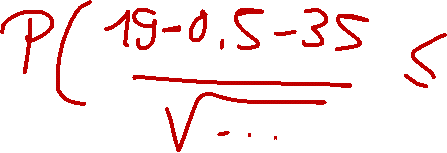 P( (19-0.5-35)/√... ≤